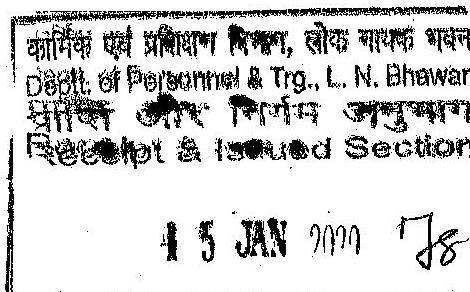 कार्मिक एवं प्रशिक्षण विभाग, लोक नायक भवन
Deptt. of Personnel & Trg., L. N. Bhawan
प्राप्ति और निर्गम अनुभाग
Receipt & Issued Section
15 JAN 2020